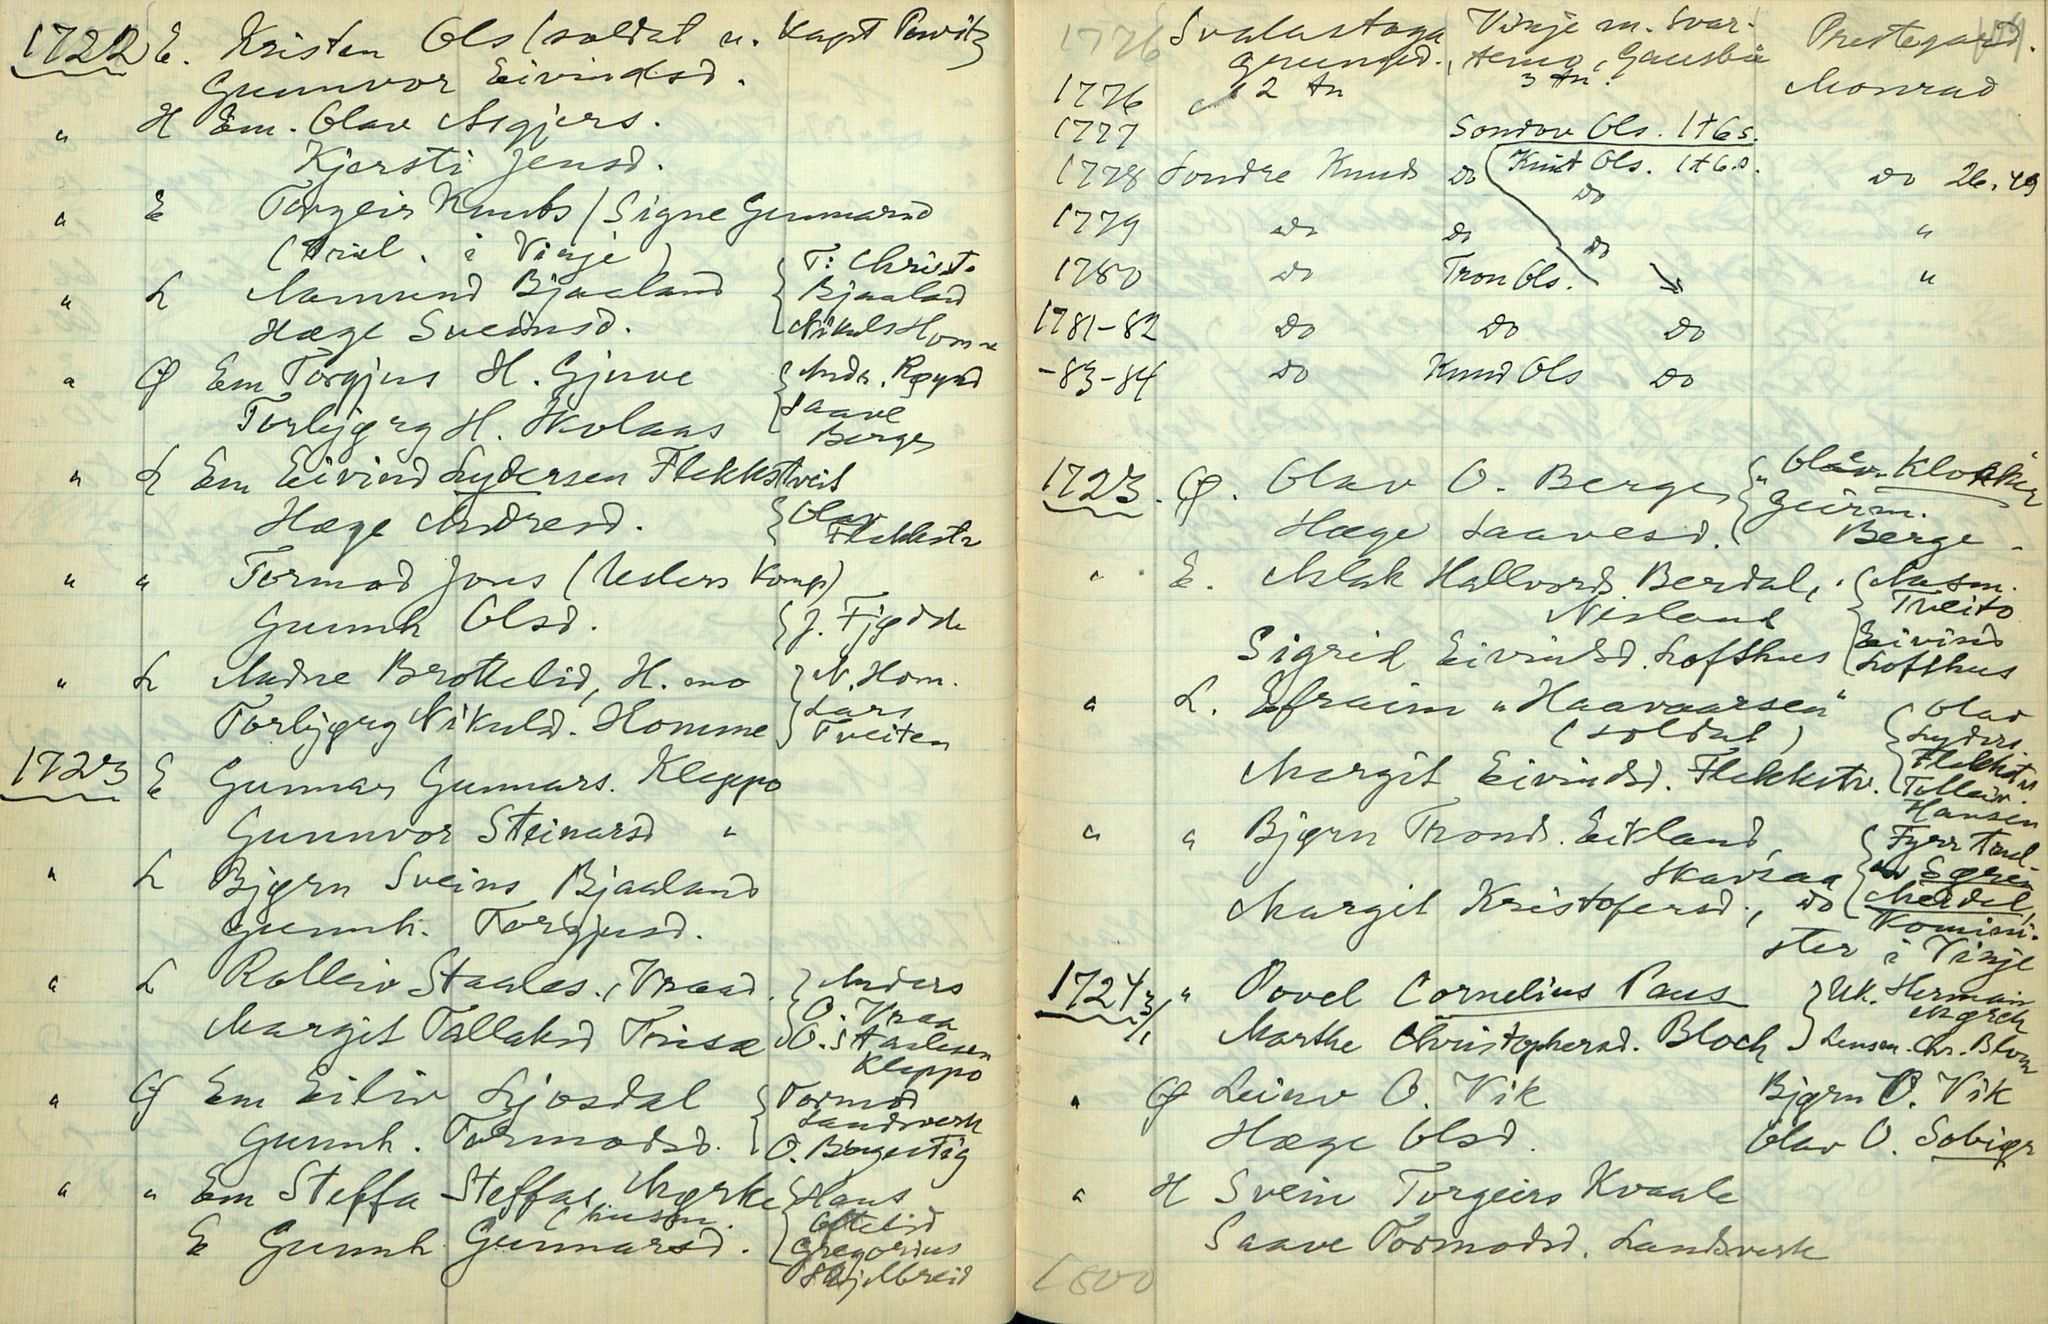 1722 E. Kristen Ols (soldat u. Kapt
Gunnvor Eivindsd.
" H Em. Olav Asgjers.
Kjersti Jensd.
" E Torgeir Knuts / Signe Gunnarsd
(Tril. i Vinje)
" L Aamund Bjaaland { T: Christo
Hæge Sveinsd. Bjaaland
Nikuls Homme
" Ø Em Torgjus H. Gjuve { Andr. Røynd
Torbjørg H. Skolaas Saave
Berge
" L Em Eivind Lydersen Flekkstveit
Hæge Andresd. { Olav
Flekkstv
" " Tormod Jons (Uslers Komp)
Gunnh Olsd. { J. Fjødde
" L Andre Brottelid, H. mo } N. Hom.
Torbjørg Nikulsd. Homme Lars
Tveiten
1723 E Gunnar Gunnars. Kleppo
Gunnvor Steinarsd "
" L Bjørn Sveins Bjaaland
Gunnh. Torgjusd.
" L Rolleiv Staales., Vraad. } Anders
O. Vraa
Margit Tallaksd Trisæ O. Staalesen
Kleppo
" Ø Em Eiliv Ljosdal { Tormod
Landsverk
Gunnh. Tormodsd. O. Børgestig
" " Em Steffa Steffas. Mørke { Hans
(husm. Oftelid
E Gunnh Gunnarsd. Gregorius
Skjelbreid
1776 Svalastoga Vinje m. Svar- Prestegard.
grunged., temo, Gausbu
1776 12 tn 3 tn. Monrad
1777 Sondov Ols. 1t6s.
1778 Sondre Knuds Do Knut Ols. 1t6s. Do 26.49
Do
1779 Do Do "
Do
1780 Do Tron Ols. "
1781-82 Do Do Do
-83-84 Do Knud Ols Do
1723. Ø. Olav O. Berge { Olav Klokker
Geirm.
Hæge Saavesd. Berge
" E. Aslak Hallvords. Berdal, { Aasm.
Nesland Tveito
Eivind
Sigrid Eivindsd. Lofthus Lofthus
" L. Efraim "Haavaarsen" { Olav
(soldat) Lyders.
Flekkstv.
Margit Eivindsd. Flekkstv. Tolleiv
Hansen
" " Bjørn Tronds. Eikland, { Fyrr trul-
Skarsaa Søren
Margit Kristofersd., Do Meidel,
Komini-
ster i Vinje
1724 3/1 " Povel Cornelius Paus } Uk. Herman
Mørch
Marthe Christophersd. Bloch Lensm. Chr. Blom
" Ø Leinv O. Vik Bjørn O. Vik
Hæge Olsd. Olav O. Sobiør
" H Svein Torgeirs Kvaale
Saave Tormodsd. Landsverk
1800